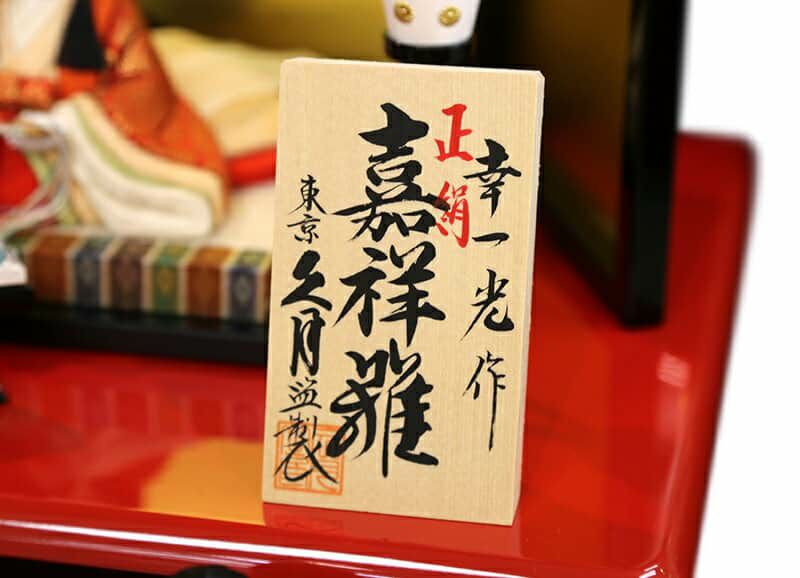 幸一光作
正絹
嘉祥雛
東京 久月監製